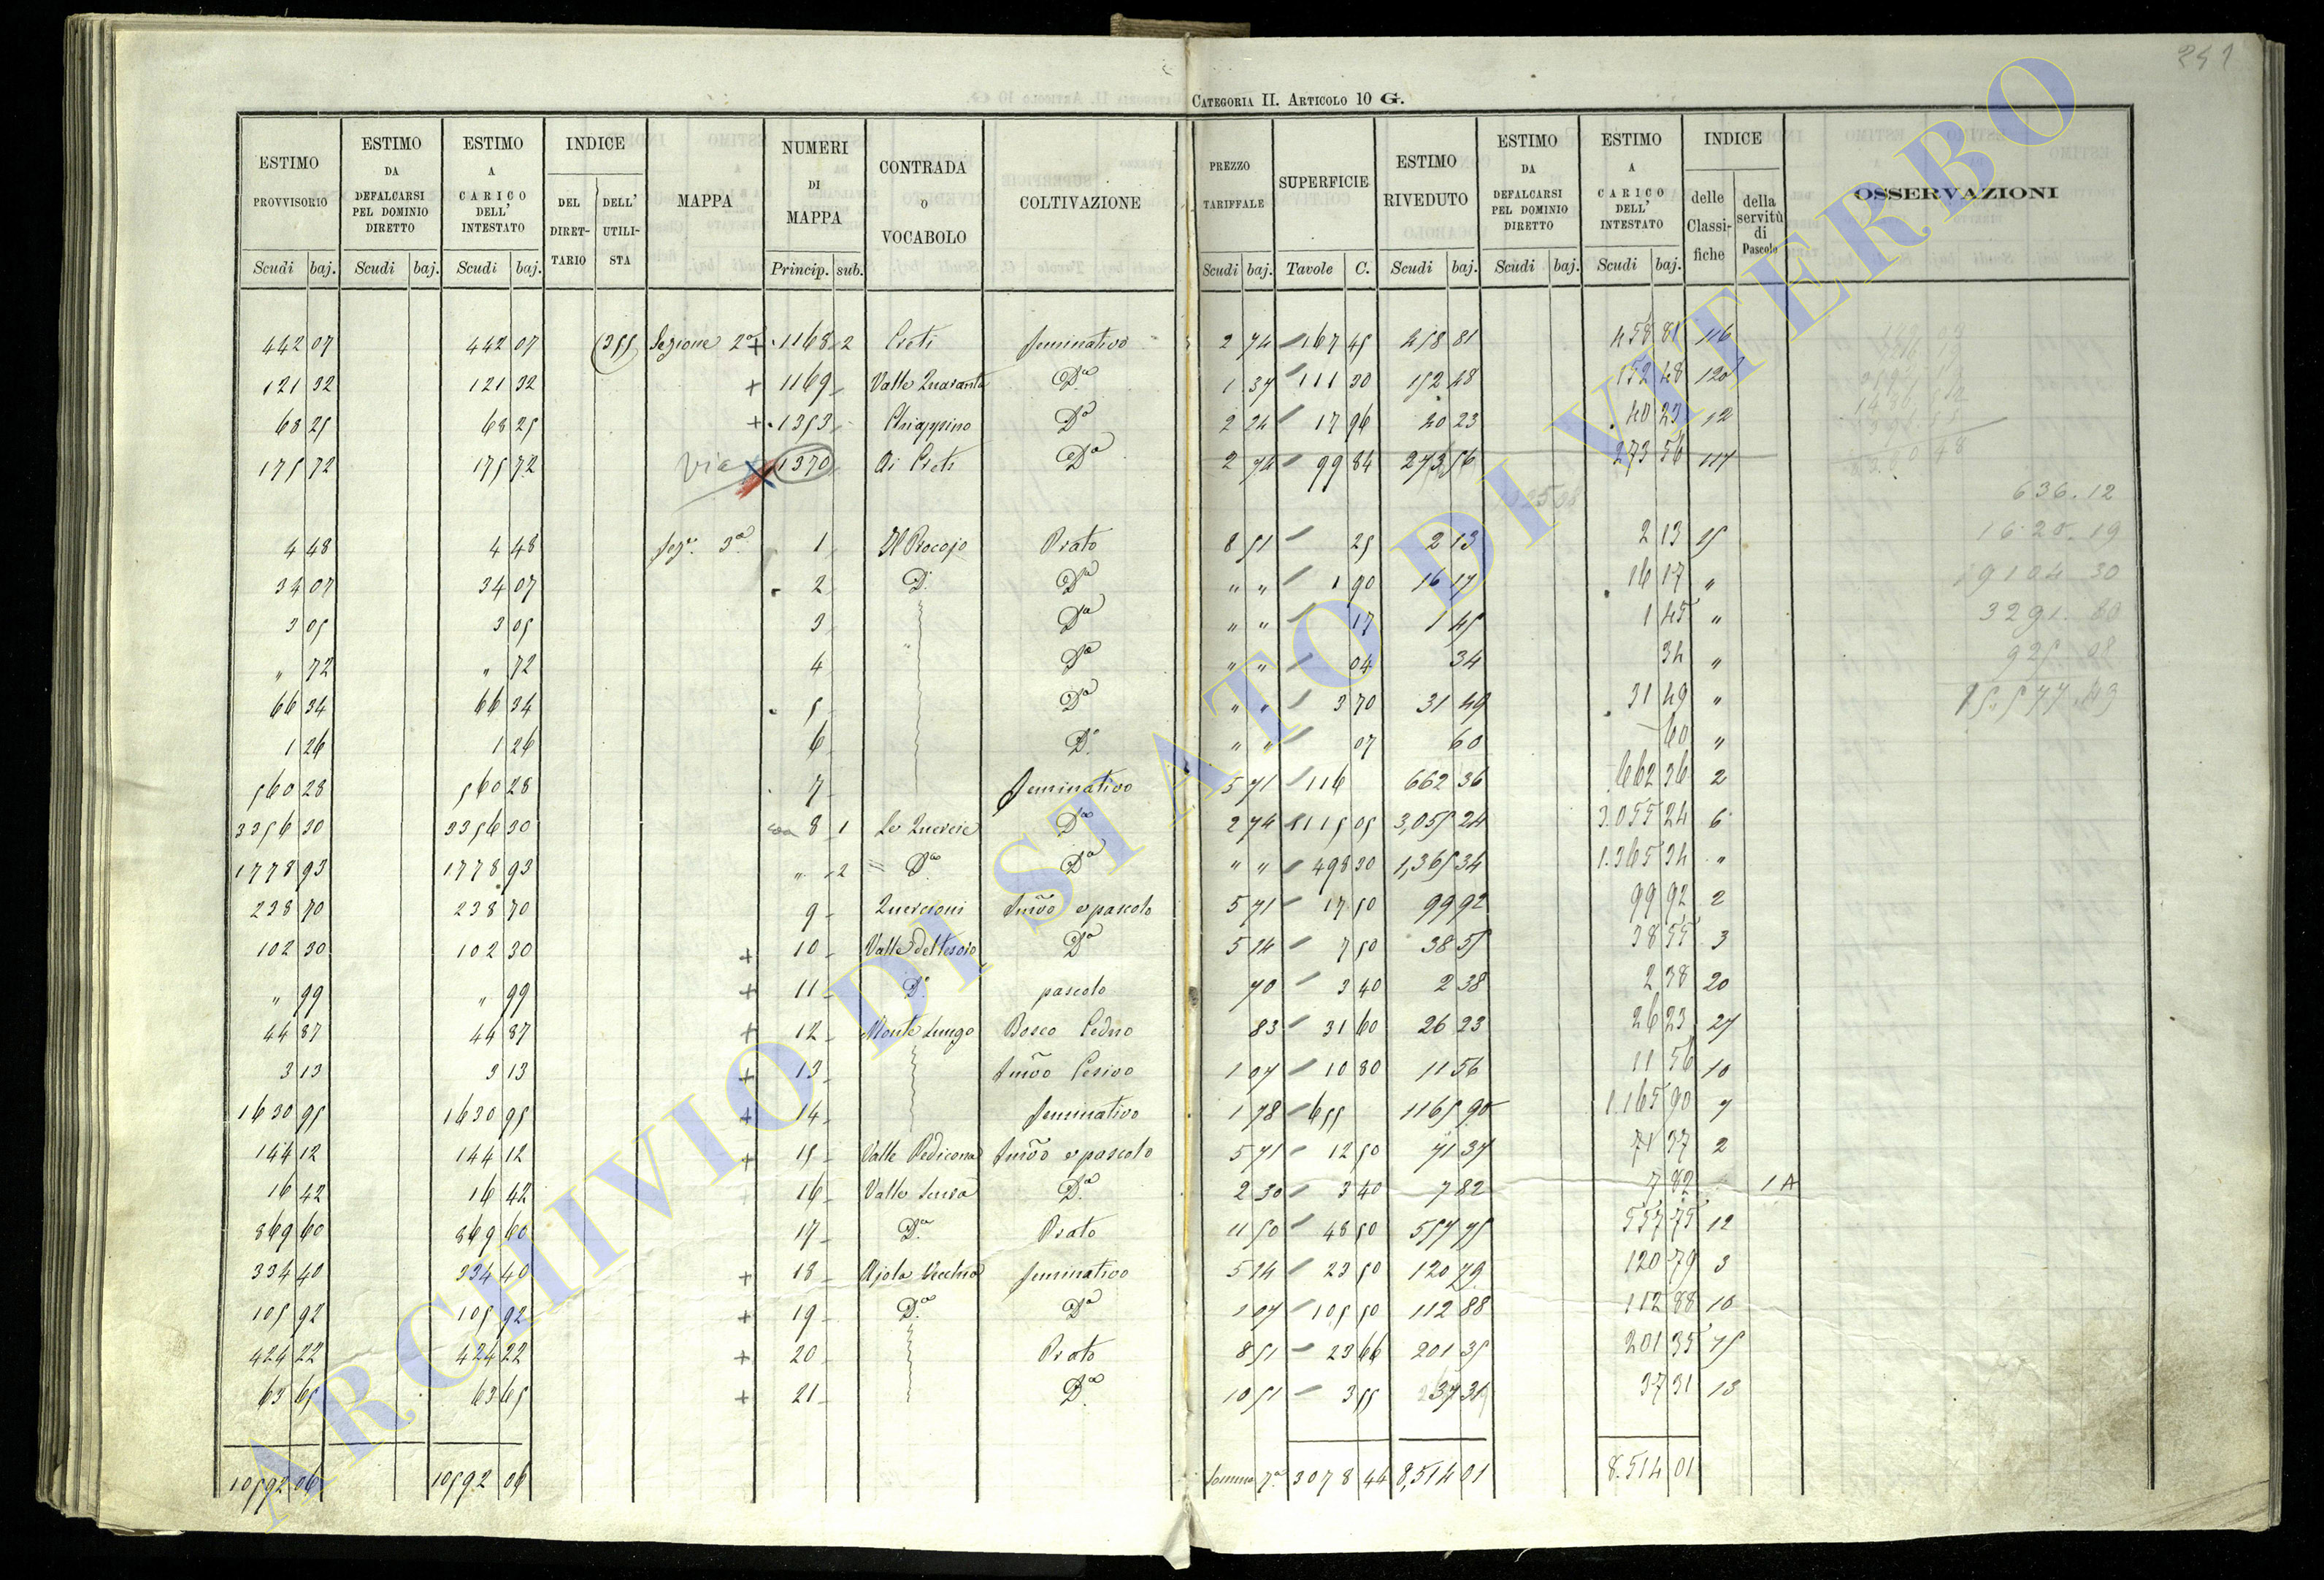 251
CATEGORIA II. ARTICOLO 10 G.
ESTIMO PROVVISORIO | ESTIMO DA DEFALCARSI PEL DOMINIO DIRETTO | ESTIMO A CARICO DELL' INTESTATO | INDICE DEL DIRETTARIO | DELL' UTILISTA | MAPPA | NUMERI DI MAPPA | CONTRADA O VOCABOLO | COLTIVAZIONE | PREZZO TARIFFALE | SUPERFICIE | ESTIMO RIVEDUTO | ESTIMO DA DEFALCARSI PEL DOMINIO DIRETTO | ESTIMO A CARICO DELL' INTESTATO | INDICE delle Classifiche | della servitù di Pascolo | OSSERVAZIONI
Scudi baj. | Scudi baj. | Scudi baj. | Princip. sub. | Scudi baj. | Tavole C. | Scudi baj. | Scudi baj. | Scudi baj.
442 07 | 442 07 | (355) | Sezione 2a + | 1168 2 | Creti | seminativo | 2 74 | 167 45 | 458 81 | 458 81 | 116
121 32 | 121 32 | + | 1169 | Valle Quaranta | Da | 1 37 | 111 30 | 152 48 | 152 48 | 120
68 25 | 68 25 | + | 1353 | Chiappino | Da | 2 24 | 17 96 | 40 23 | 40 23 | 12
175 72 | 175 72 | via | 1370 | Ai Creti | Da | 2 74 | 99 84 | 273 56 | 273 56 | 117
636.12
4 48 | 4 48 | Sezne 3a | 1 | Il Procojo | Prato | 8 51 | 25 | 2 13 | 2 13 | 15 | 1620.19
34 07 | 34 07 | 2 | Do | Da | " " | 1 90 | 16 17 | 16 17 | " | 9104 30
3 05 | 3 05 | 3 | Da | " " | 17 | 1 45 | 1 45 | " | 3291.80
" 72 | " 72 | 4 | Da | " " | 04 | 34 | 34 | " | 925 08
66 34 | 66 34 | 5 | Da | " " | 3 70 | 31 49 | 31 49 | " | 15.577.43
1 26 | 1 26 | 6 | Do | " " | 07 | 60 | 60 | "
560 28 | 560 28 | 7 | seminativo | 5 71 | 116 | 662 36 | 662 36 | 2
3356 30 | 3356 30 | 8 1 | Le Quercie | Da | 2 74 | 1115 05 | 3,055 24 | 3.055 24 | 6
1778 93 | 1778 93 | " 2 | Da | Da | " " | 498 30 | 1,365 34 | 1.365 34 | "
238 70 | 238 70 | 9 | Quercioni | semvo e pascolo | 5 71 | 17 50 | 99 92 | 99 92 | 2
102 30 | 102 30 | + | 10 | Valle del tesoro | Da | 5 14 | 7 50 | 38 55 | 38 55 | 3
" 99 | " 99 | + | 11 | Do | pascolo | 70 | 3 40 | 2 38 | 2 38 | 20
44 87 | 44 87 | + | 12 | Monte Lungo | Bosco Ceduo | 83 | 31 60 | 26 23 | 26 23 | 27
3 13 | 3 13 | + | 13 | semvo Cesivo | 1 07 | 10 80 | 11 56 | 11 56 | 10
1630 95 | 1630 95 | + | 14 | seminativo | 1 78 | 655 | 1165 90 | 1.165 90 | 7
144 12 | 144 12 | + | 15 | Valle Pedicona | semvo e pascolo | 5 71 | 12 50 | 71 37 | 71 37 | 2
16 42 | 16 42 | 16 | Valle scura | Da | 2 30 | 3 40 | 7 82 | 7 82 | 1 A
869 60 | 869 60 | 17 | Da | Prato | 11 50 | 48 50 | 557 75 | 557 75 | 12
334 40 | 334 40 | + | 18 | Ajola Vecchia | seminativo | 5 14 | 23 50 | 120 79 | 120 79 | 3
105 92 | 105 92 | + | 19 | Da | Da | 1 07 | 105 50 | 112 88 | 112 88 | 10
424 22 | 424 22 | + | 20 | Prato | 8 51 | 23 66 | 201 35 | 201 35 | 15
63 65 | 63 65 | + | 21 | Da | 10 51 | 3 55 | 37 31 | 37 31 | 13
10592 06 | 10592 06 | Somma 7a | 3078 44 | 8,514 01 | 8.514 01
ARCHIVIO DI STATO DI VITERBO